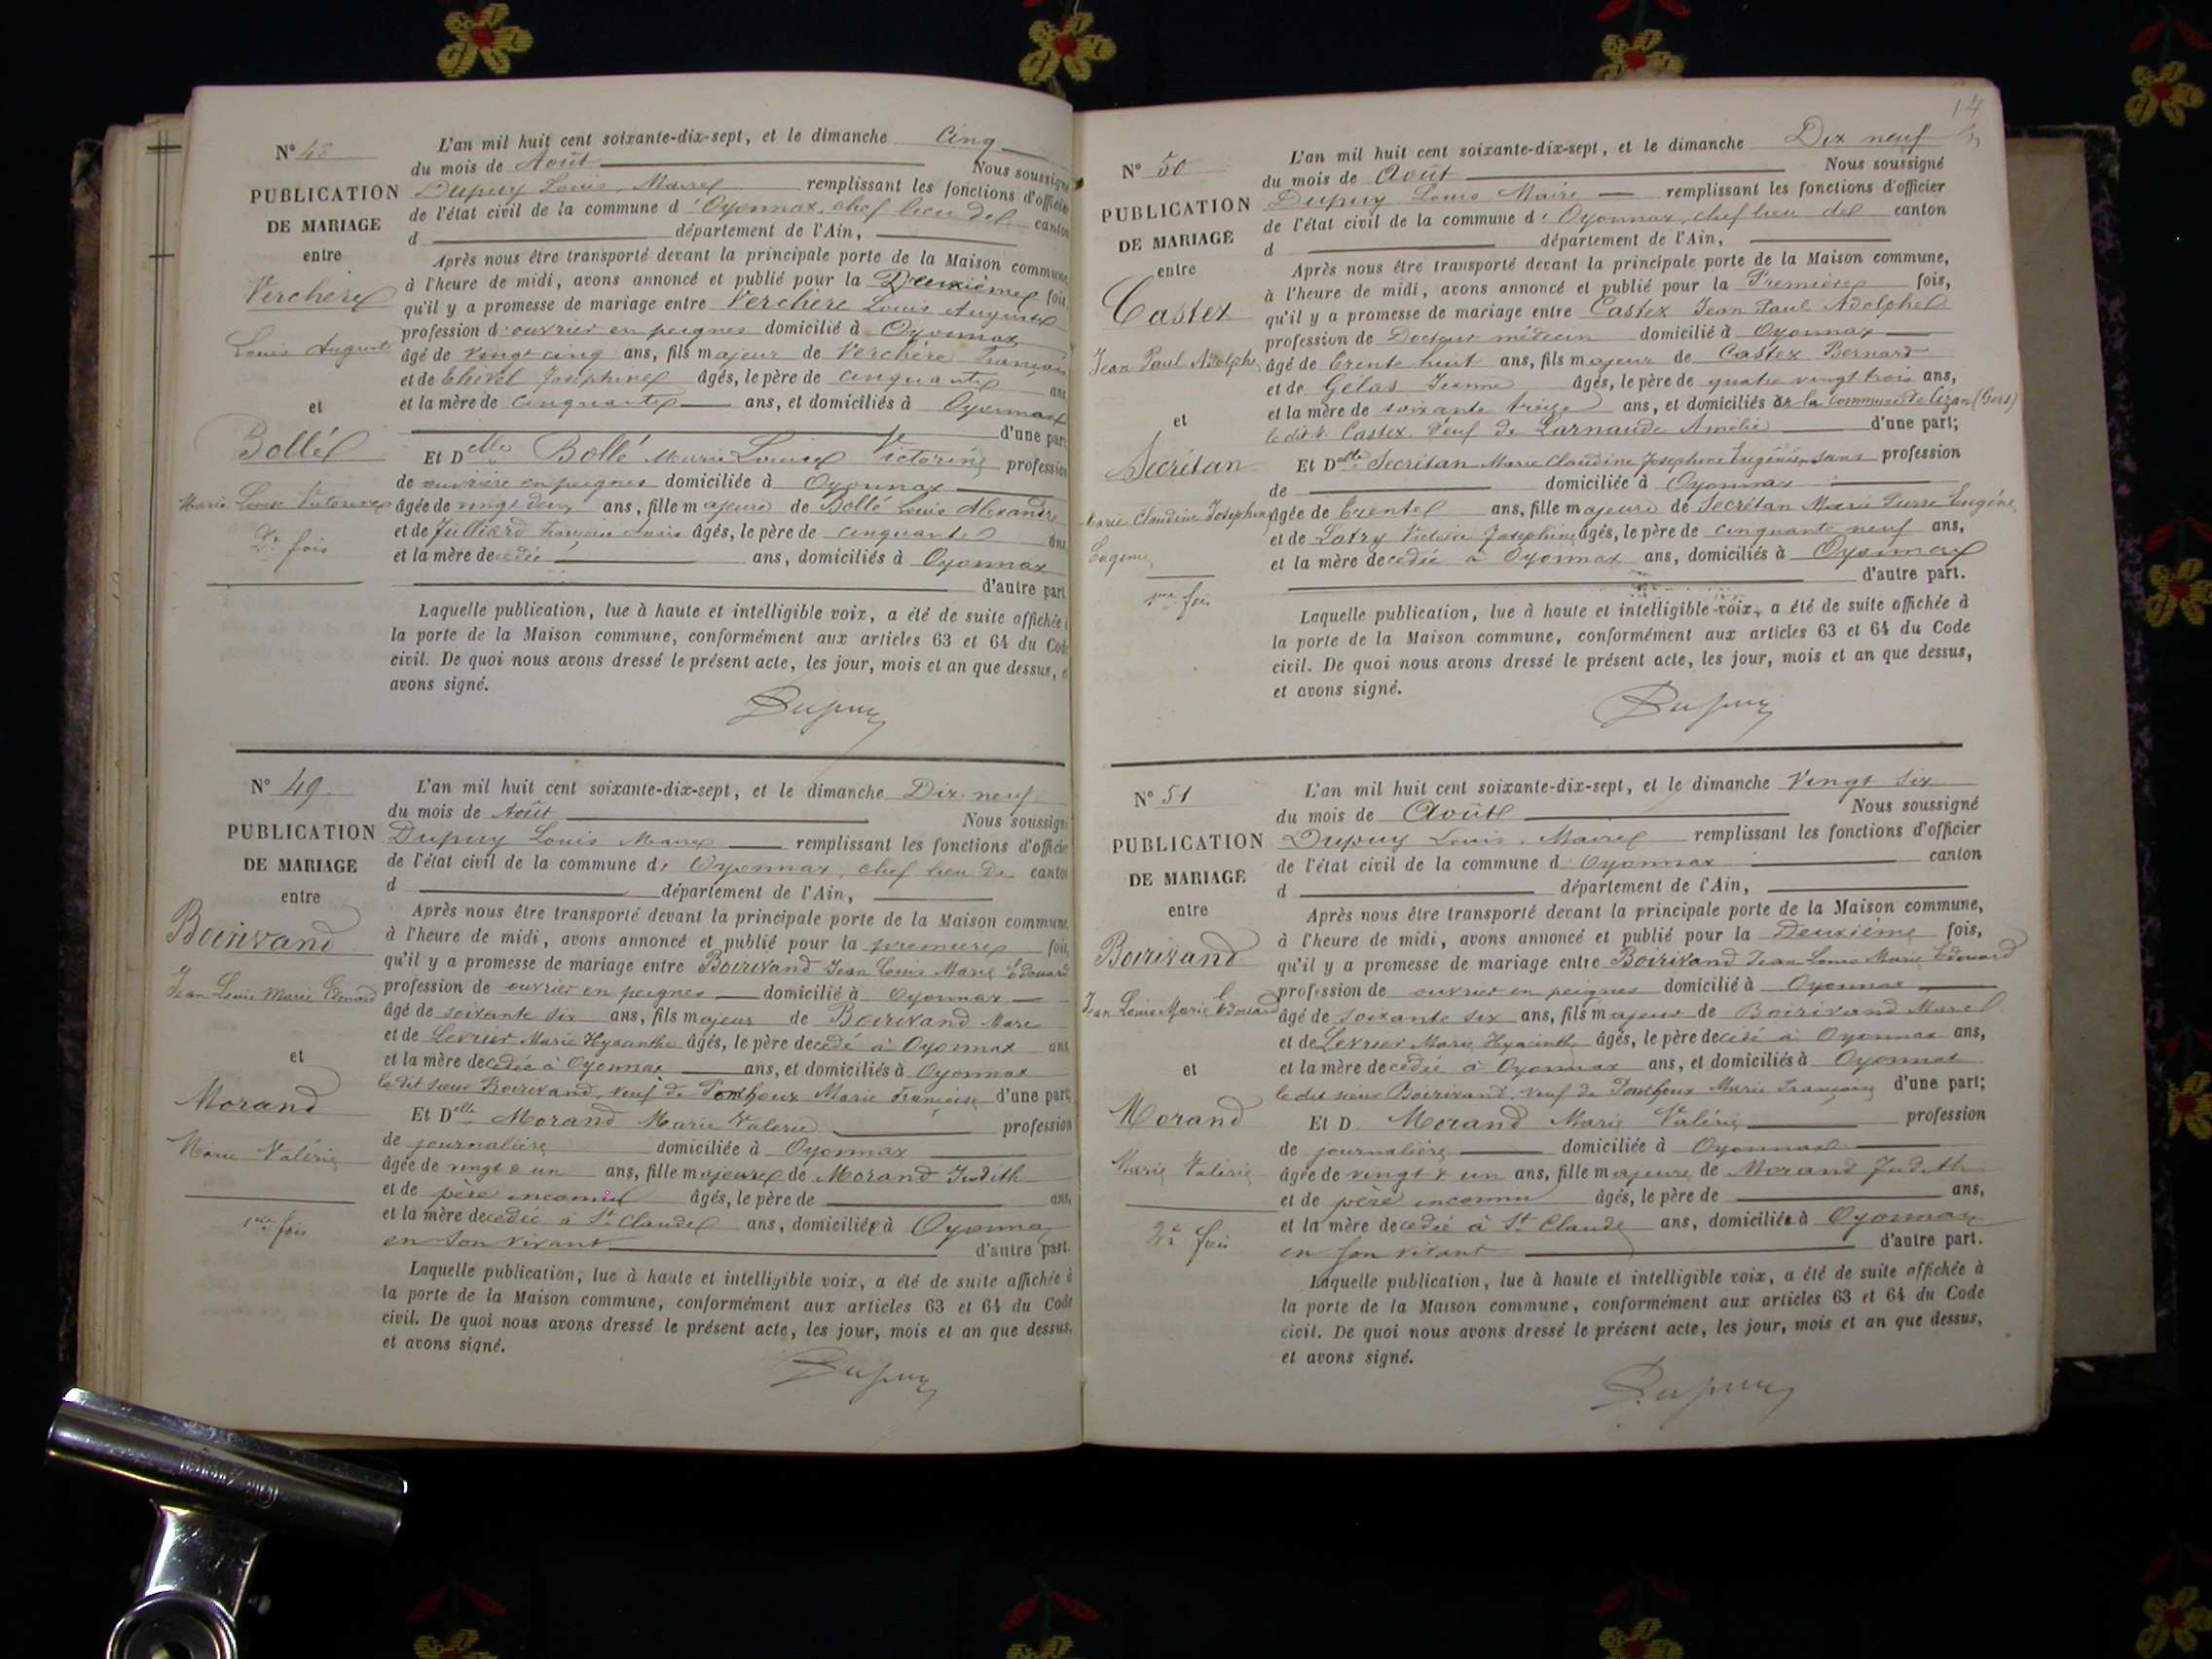 N° 48
PUBLICATION
DE MARIAGE
entre
Verchère
Louis August
et
Bollé
Marie Louise Victorine
2e fois
L'an mil huit cent soixante-dix-sept, et le dimanche Cinq
du mois de Août Nous soussigné
Dupuy Louis, Maire remplissant les fonctions d'officier
de l'état civil de la commune d'Oyonnax, chef lieu de canton
d département de l'Ain,
Après nous être transporté devant la principale porte de la Maison commune,
à l'heure de midi, avons annoncé et publié pour la Deuxième fois,
qu'il y a promesse de mariage entre Verchère Louis Auguste
profession d'ouvrier en peignes domicilié à Oyonnax
âgé de vingt cinq ans, fils majeur de Verchère François
et de Joséphine âgés, le père de cinquante ans
et la mère de cinquante ans, et domiciliés à Oyonnax
d'une part
Et Delle Bollé Marie Louise Victorine profession
de ouvrière en peignes domiciliée à Oyonnax
âgée de vingt deux ans, fille majeure de Bollé Louis Alexandre
et de Juillard Françoise âgés, le père de cinquante ans
et la mère decedée ans, domiciliés à Oyonnax
d'autre part.
Laquelle publication, lue à haute et intelligible voix, a été de suite affichée à
la porte de la Maison commune, conformément aux articles 63 et 64 du Code
civil. De quoi nous avons dressé le présent acte, les jour, mois et an que dessus, et
avons signé.
Dupuy
N° 49
PUBLICATION
DE MARIAGE
entre
Boirivand
Jean Louis Marie Edouard
et
Morand
Marie Valérie
1ere fois
L'an mil huit cent soixante-dix-sept, et le dimanche Dix-neuf
du mois de Août Nous soussigné
Dupuy Louis Maire remplissant les fonctions d'officier
de l'état civil de la commune d'Oyonnax, chef lieu de canton
d département de l'Ain,
Après nous être transporté devant la principale porte de la Maison commune,
à l'heure de midi, avons annoncé et publié pour la première fois,
qu'il y a promesse de mariage entre Boirivand Jean Louis Marie Edouard
profession de ouvrier en peignes domicilié à Oyonnax
âgé de soixante six ans, fils majeur de Boirivand Marc
et de Levrier Marie Hyacinthe âgés, le père decedé à Oyonnax ans
et la mère decedée à Oyonnax ans, et domiciliés à Oyonnax
le dit sieur Boirivand, veuf de Ponthoux Marie Françoise d'une part;
Et Delle Morand Marie Valérie profession
de journalière domiciliée à Oyonnax
âgée de vingt & un ans, fille majeure de Morand Judith
et de père inconnu âgés, le père de ans,
et la mère decedée à St Claude ans, domiciliée à Oyonnax
en son vivant d'autre part.
Laquelle publication, lue à haute et intelligible voix, a été de suite affichée à
la porte de la Maison commune, conformément aux articles 63 et 64 du Code
civil. De quoi nous avons dressé le présent acte, les jour, mois et an que dessus,
et avons signé.
Dupuy
14
N° 50
PUBLICATION
DE MARIAGE
entre
Castex
Jean Paul Adolphe
et
Secrétan
Marie Claudine Josephine
Eugenie
1ere fois
L'an mil huit cent soixante-dix-sept, et le dimanche Dix neuf
du mois de Août Nous soussigné
Dupuy Louis Maire remplissant les fonctions d'officier
de l'état civil de la commune d'Oyonnax, chef lieu de canton
d département de l'Ain,
Après nous être transporté devant la principale porte de la Maison commune,
à l'heure de midi, avons annoncé et publié pour la Première fois,
qu'il y a promesse de mariage entre Castex Jean Paul Adolphe
profession de Docteur médecin domicilié à Oyonnax
âgé de trente huit ans, fils majeur de Castex Bernard
et de Gélas Jeanne âgés, le père de quatre vingt trois ans,
et la mère de soixante treize ans, et domiciliés à la commune de Cézan (Gers)
le dit Castex veuf de Larnaude Amélie d'une part;
Et Delle Secrétan Marie Claudine Josephine Eugénie, sans profession
de domiciliée à Oyonnax
âgée de trente ans, fille majeure de Secrétan Marie Pierre Eugène
et de Latry Victoire Josephine âgés, le père de cinquante neuf ans,
et la mère decedée à Oyonnax ans, domiciliés à Oyonnax
d'autre part.
Laquelle publication, lue à haute et intelligible voix, a été de suite affichée à
la porte de la Maison commune, conformément aux articles 63 et 64 du Code
civil. De quoi nous avons dressé le présent acte, les jour, mois et an que dessus,
et avons signé.
Dupuy
N° 51
PUBLICATION
DE MARIAGE
entre
Boirivand
Jean Louis Marie Edouard
et
Morand
Marie Valérie
2e fois
L'an mil huit cent soixante-dix-sept, et le dimanche Vingt six
du mois de Août Nous soussigné
Dupuy Louis, Maire remplissant les fonctions d'officier
de l'état civil de la commune d'Oyonnax canton
d département de l'Ain,
Après nous être transporté devant la principale porte de la Maison commune,
à l'heure de midi, avons annoncé et publié pour la Deuxième fois,
qu'il y a promesse de mariage entre Boirivand Jean Louis Marie Edouard
profession de ouvrier en peignes domicilié à Oyonnax
âgé de soixante six ans, fils majeur de Boirivand Marc
et de Levrier Marie Hyacinthe âgés, le père decedé à Oyonnax ans,
et la mère decedée à Oyonnax ans, et domiciliés à Oyonnax
le dit sieur Boirivand, veuf de Ponthoux Marie Françoise d'une part;
Et D Morand Marie Valérie profession
de journalière domiciliée à Oyonnax
âgée de vingt & un ans, fille majeure de Morand Judith
et de père inconnu âgés, le père de ans,
et la mère decedée à St Claude ans, domiciliée à Oyonnax
en son vivant d'autre part.
Laquelle publication, lue à haute et intelligible voix, a été de suite affichée à
la porte de la Maison commune, conformément aux articles 63 et 64 du Code
civil. De quoi nous avons dressé le présent acte, les jour, mois et an que dessus,
et avons signé.
Dupuy